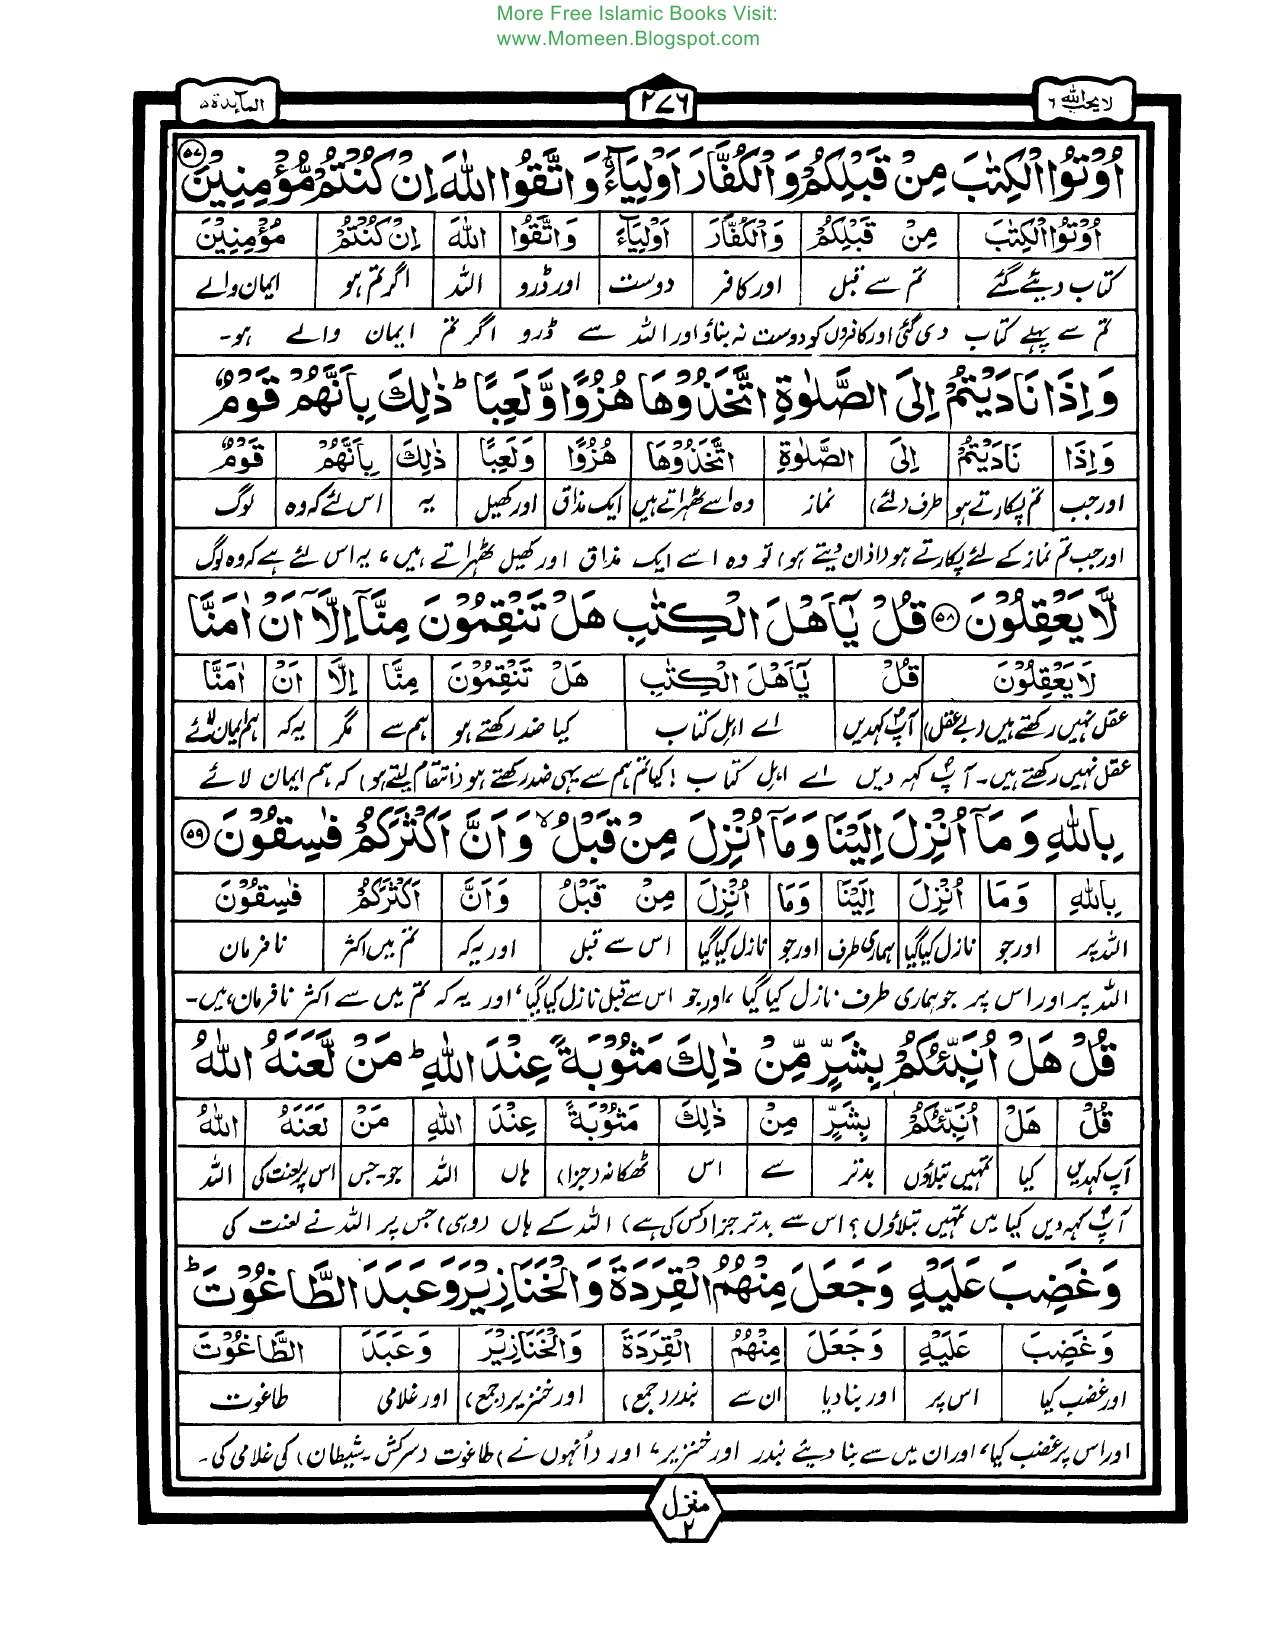 More Free Islamic Books Visit:
www.Momeen.Blogspot.com
لا یحب اللہ ۶ ۲۷۶ المآىِٕدة ۵
اُوْتُوا الْكِتٰبَ مِنْ قَبْلِكُمْ وَالْكُفَّارَ اَوْلِيَآءَ ۚ وَاتَّقُوا اللّٰهَ اِنْ كُنْتُمْ مُّؤْمِنِيْنَ ۵۷
اُوْتُوا الْكِتٰبَ مِنْ قَبْلِكُمْ وَالْكُفَّارَ اَوْلِيَآءَ وَاتَّقُوا اللّٰهَ اِنْ كُنْتُمْ مُؤْمِنِيْنَ
کتاب دیئے گئے تم سے قبل اور کافر دوست اور ڈرو اللہ اگر تم ہو ایمان والے
تم سے پہلے کتاب دی گئی اور کافروں کو دوست نہ بناؤ اور اللہ سے ڈرو اگر تم ایمان والے ہو۔
وَاِذَا نَادَيْتُمْ اِلَى الصَّلٰوةِ اتَّخَذُوْهَا هُزُوًا وَّلَعِبًا ؕ ذٰلِكَ بِاَنَّهُمْ قَوْمٌ
وَاِذَا نَادَيْتُمْ اِلَى الصَّلٰوةِ اتَّخَذُوْهَا هُزُوًا وَلَعِبًا ذٰلِكَ بِاَنَّهُمْ قَوْمٌ
اور جب تم پکارتے ہو طرف (لئے) نماز وہ اسے ٹھہراتے ہیں ایک مذاق اور کھیل یہ اس لئے کہ وہ لوگ
اور جب تم نماز کے لئے پکارتے ہو (اذان دیتے ہو) تو وہ اسے ایک مذاق اور کھیل ٹھہراتے ہیں، یہ اس لئے ہے کہ وہ لوگ
لَّا يَعْقِلُوْنَ ۵۸ قُلْ يٰٓاَهْلَ الْكِتٰبِ هَلْ تَنْقِمُوْنَ مِنَّآ اِلَّآ اَنْ اٰمَنَّا
لَا يَعْقِلُوْنَ قُلْ يٰٓاَهْلَ الْكِتٰبِ هَلْ تَنْقِمُوْنَ مِنَّا اِلَّا اَنْ اٰمَنَّا
عقل نہیں رکھتے ہیں (بے عقل) آپ کہدیں اے اہل کتاب کیا ضد رکھتے ہو ہم سے مگر یہ کہ ہم ایمان لائے
عقل نہیں رکھتے ہیں۔ آپؐ کہہ دیں اے اہل کتاب! کیا تم ہم سے یہی ضد رکھتے ہو (انتقام لیتے ہو) کہ ہم ایمان لائے
بِاللّٰهِ وَمَآ اُنْزِلَ اِلَيْنَا وَمَآ اُنْزِلَ مِنْ قَبْلُ ۙ وَاَنَّ اَكْثَرَكُمْ فٰسِقُوْنَ ۵۹
بِاللّٰهِ وَمَا اُنْزِلَ اِلَيْنَا وَمَا اُنْزِلَ مِنْ قَبْلُ وَاَنَّ اَكْثَرَكُمْ فٰسِقُوْنَ
اللہ پر اور جو نازل کیا گیا ہماری طرف اور جو نازل کیا گیا اس سے قبل اور یہ کہ تم میں اکثر نافرمان
اللہ پر اور اس پر جو ہماری طرف نازل کیا گیا، اور جو اس سے قبل نازل کیا گیا، اور یہ کہ تم میں سے اکثر نافرمان ہیں۔
قُلْ هَلْ اُنَبِّئُكُمْ بِشَرٍّ مِّنْ ذٰلِكَ مَثُوْبَةً عِنْدَ اللّٰهِ ؕ مَنْ لَّعَنَهُ اللّٰهُ
قُلْ هَلْ اُنَبِّئُكُمْ بِشَرٍّ مِنْ ذٰلِكَ مَثُوْبَةً عِنْدَ اللّٰهِ مَنْ لَعَنَهُ اللّٰهُ
آپ کہدیں کیا تمہیں بتلاؤں بدتر سے اس ٹھکانہ (جزا) ہاں اللہ جو۔جس اس پر لعنت کی اللہ
آپؐ کہہ دیں کیا میں تمہیں بتلاؤں؟ اس سے بدتر جزا (کس کی ہے) اللہ کے ہاں (وہی) جس پر اللہ نے لعنت کی
وَغَضِبَ عَلَيْهِ وَجَعَلَ مِنْهُمُ الْقِرَدَةَ وَالْخَنَازِيْرَ وَعَبَدَ الطَّاغُوْتَ ؕ
وَغَضِبَ عَلَيْهِ وَجَعَلَ مِنْهُمُ الْقِرَدَةَ وَالْخَنَازِيْرَ وَعَبَدَ الطَّاغُوْتَ
اور غضب کیا اس پر اور بنا دیا ان سے بندر (جمع) اور خنزیر (جمع) اور غلامی طاغوت
اور اس پر غضب کیا، اور ان میں سے بنا دیئے بندر اور خنزیر، اور (اُنہوں نے) طاغوت (سرکش۔شیطان) کی غلامی کی۔
منزل ۲